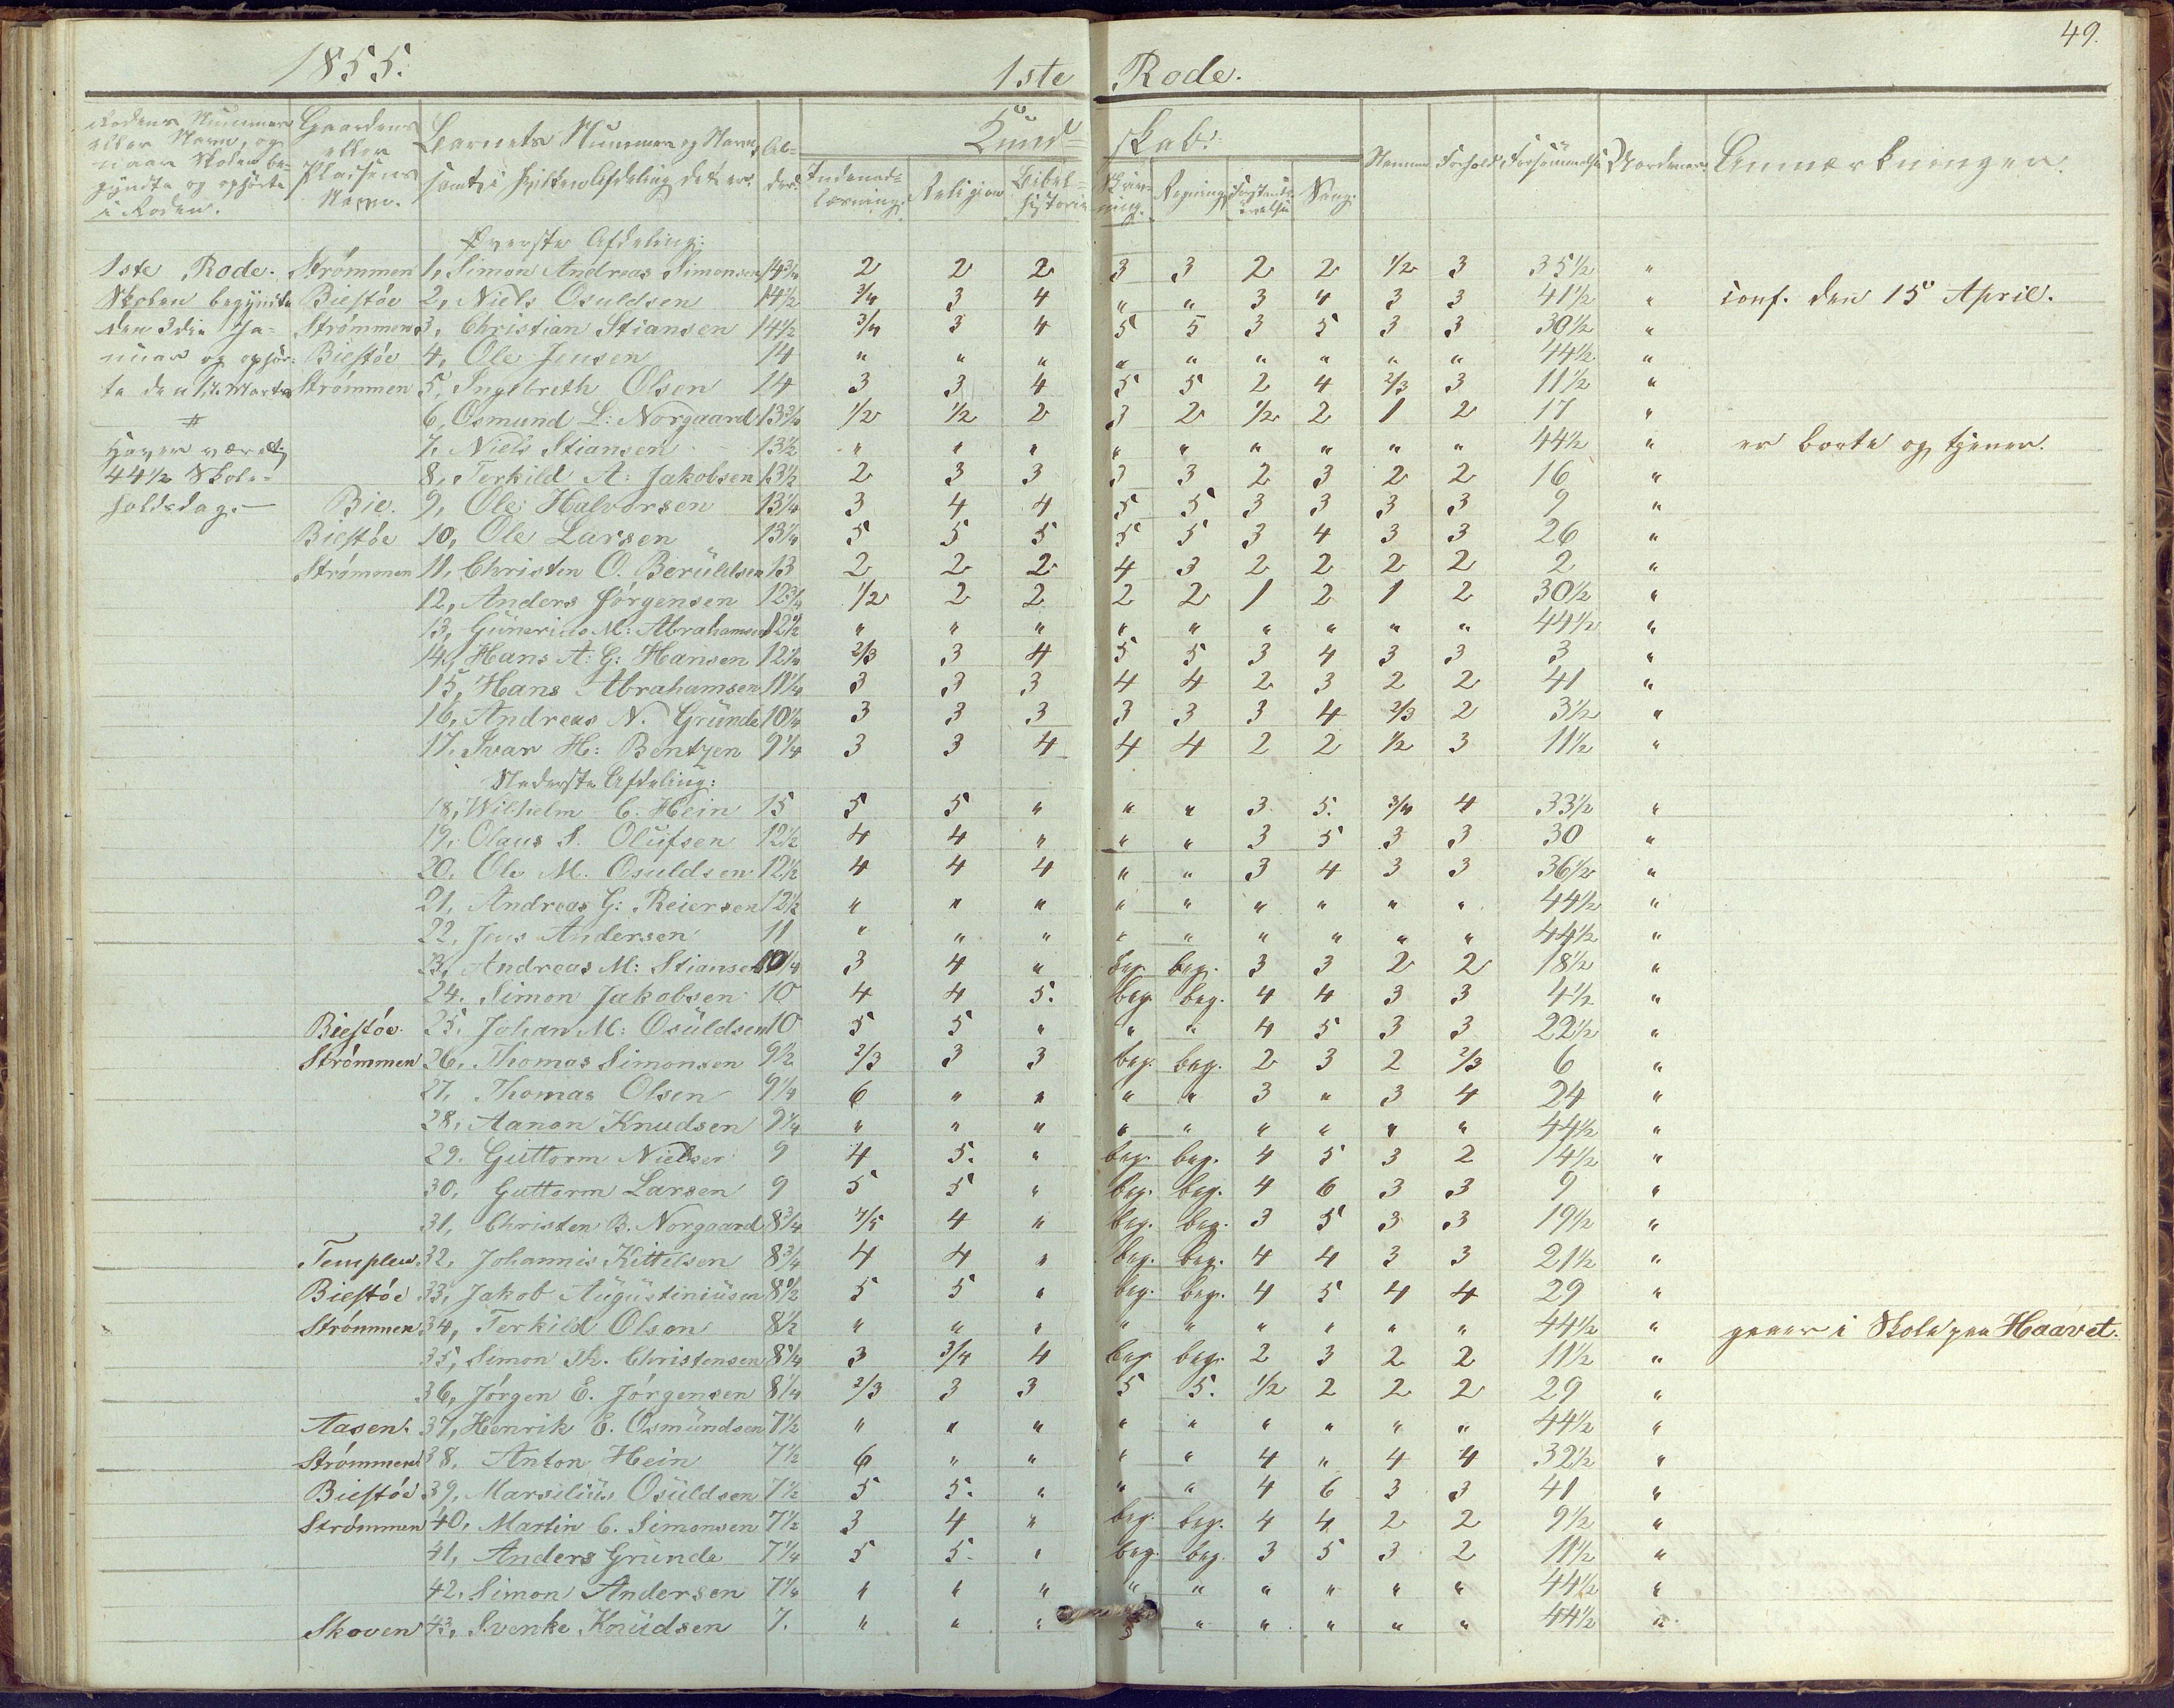 49.
1855. 1ste Rode.
Rodens Nummer eller Navn, og naar Skolen be- gyndte og ophørte i Roden.
Gaardens eller Pladsens Navn.
Barnets Nummer og Navn, samt i hvilken Afdeling det er.
Al- der.
Kund= skab:
Indenad= læsning.
Religion
Bibel= historie
Skriv- ning.
Regning
Forstands øvelse
Sang.
Nemme
Forhold
Forsømmelse
Anmærkninger.
Øverste Afdeling:
1ste Rode. Strømmen 1, Simon Andreas Simonsen 14 3/4 2 2 2 3 3 2 2 1/2 3 35 1/2 "
Skolen begyndte Biestøe 2, Niels Osuldsen 14 1/2 3/4 3 4 " " 3 4 3 3 41 1/2 " conf. den 15 April.
den 3die Ja- Strømmen 3, Christian Stiansen 14 1/2 3/4 3 4 5 5 3 5 3 3 30 1/2 "
nuar og ophør- Biestøe 4, Ole Jensen 14 " " " " " " " " " 44 1/2 "
te den 17 Marts Strømmen 5, Ingelbreth Olsen 14 3 3 4 5 5 2 4 2/3 3 11 1/2 "
# 6, Osmund L: Norgaard 13 3/4 1/2 1/2 2 3 2 1/2 2 1 2 17 "
Haver været 7, Niels Stiansen 13 1/2 " " " " " " " " " 44 1/2 " er borte og tjener.
44 1/2 Skole- 8, Terkild A: Jakobsen 13 1/2 2 3 3 3 3 2 3 2 2 16 "
holdsdag.— Bie. 9, Ole Halvorsen 13 1/4 3 4 4 5 5 3 3 3 3 9 "
Biestøe 10, Ole Larsen 13 1/4 5 5 5 5 5 3 4 3 3 26 "
Strømmen 11, Christen O. Beruldsen 13 2 2 2 4 3 2 2 2 2 2 "
12, Anders Jørgensen 12 3/4 1/2 2 2 2 2 1 2 1 2 30 1/2 "
13, Gunerius M: Abrahamsen 12 1/2 " " " " " " " " " 44 1/2 "
14, Hans A: G: Hansen 12 1/4 2/3 3 4 5 5 3 4 3 3 3 "
15, Hans Abrahamsen 11 1/4 3 3 3 4 4 2 3 2 2 41 "
16, Andreas N. Grunde 10 1/4 3 3 3 3 3 3 4 2/3 2 3 1/2 "
17. Ivar H: Bentzen 9 1/4 3 3 4 4 4 2 2 1/2 3 11 1/2 "
Nederste Afdeling:
18, Wilhelm C. Hein 15 5 5 " " " 3 5. 3/4 4 33 1/2 "
19, Olaus S. Olufsen 12 1/2 4 4 " " " 3 5 3 3 30 "
20, Ole M. Osuldsen 12 1/2 4 4 4 " " 3 4 3 3 36 1/2 "
21, Andreas G: Reiersen 12 1/2 " " " " " " " " " 44 1/2 "
22, Jens Andersen 11 " " " " " " " " " 44 1/2 "
23, Andreas M: Stiansen 10 1/4 3 4 " beg. beg. 3 3 2 2 18 1/2 "
24. Simon Jakobsen 10 4 4 5. beg. beg. 4 4 3 3 4 1/2 "
Biestøe. 25, Johan M: Osuldsen 10 5 5 " " " 4 5 3 3 22 1/2 "
Strømmen 26, Thomas Simonsen 9 1/2 2/3 3 3 beg. beg. 2 3 2 2/3 6 "
27, Thomas Olsen 9 1/4 6 " " " " 3 " 3 4 24 "
28, Aanon Knudsen 9 1/4 " " " " " " " " " 44 1/2 "
29. Guttorm Nielsen 9 4 5. " beg. beg. 4 5 3 2 14 1/2 "
30, Guttorm Larsen 9 5 5 " beg. beg. 4 6 3 3 9 "
31, Christen B. Norgaard 8 3/4 4/5 4 " beg. beg. 3 5 3 3 19 1/2 "
Templen. 32, Johannis Kittelsen 8 3/4 4 4 " beg. beg. 4 4 3 3 21 1/2 "
Biestøe 33, Jakob Augustiniusen 8 1/2 5 5 " beg. beg. 4 5 4 4 29 "
Strømmen 34, Terkild Olson 8 1/2 " " " " " " " " " 44 1/2 " gaaer i Skole paa Haavet.
35, Simon Th. Christensen 8 1/4 3 3/4 4 beg. beg. 2 3 2 2 11 1/2 "
36, Jørgen E. Jørgensen 8 1/4 2/3 3 3 5 5. 1/2 2 2 2 29 "
Aasen. 37, Henrik E. Osmundsen 7 1/2 " " " " " " " " " 44 1/2 "
Strømmen 38. Anton Hein 7 1/2 6 " " " " 4 " 4 4 32 1/2 "
Biestøe 39, Marsilius Osuldsen 7 1/2 5 5. " " " 4 6 3 3 41 "
Strømmen 40, Martin C. Simonsen 7 1/2 3 4 " beg. beg. 4 4 2 2 9 1/2 "
41, Anders Grunde 7 1/4 5 5. " beg. beg. 3 5 3 2 11 1/2 "
42. Simon Andersen 7 1/4 " " " " " " " " " 44 1/2 "
Skoven 43, Svenke Knudsen 7. " " " " " " " " 44 1/2 "